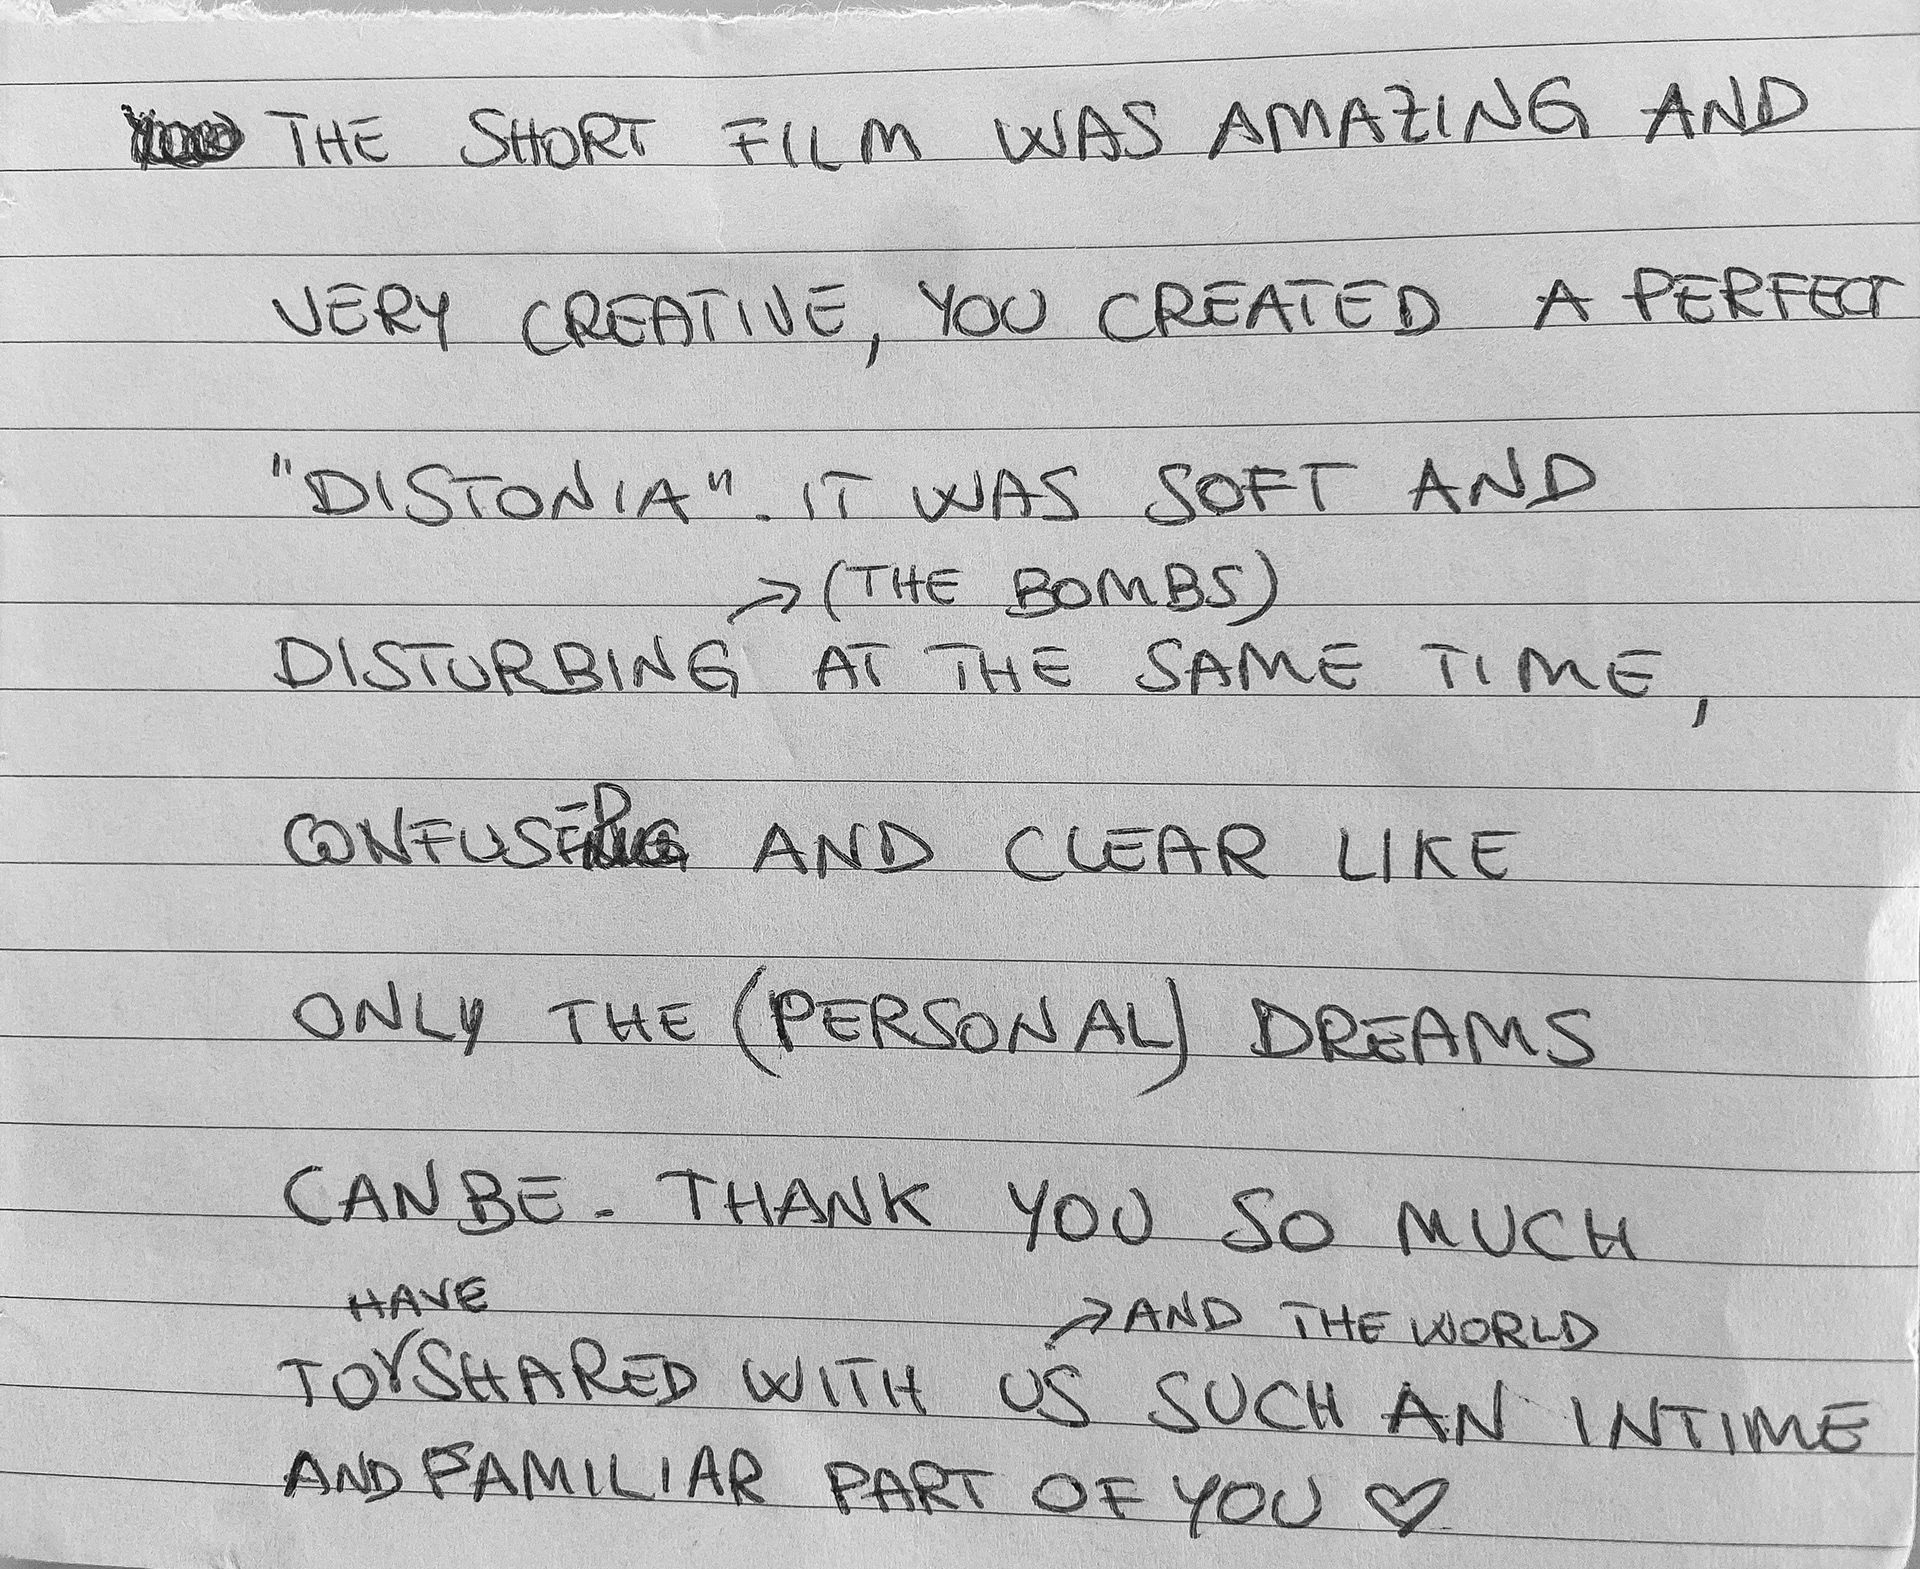 THE SHORT FILM WAS AMAZING AND
VERY CREATIVE, YOU CREATED A PERFECT
"DISTONIA". IT WAS SOFT AND
→(THE BOMBS)
DISTURBING AT THE SAME TIME,
CONFUSED AND CLEAR LIKE
ONLY THE (PERSONAL) DREAMS
CAN BE. THANK YOU SO MUCH
HAVE →AND THE WORLD
TO SHARED WITH US SUCH AN INTIME
AND FAMILIAR PART OF YOU ♡